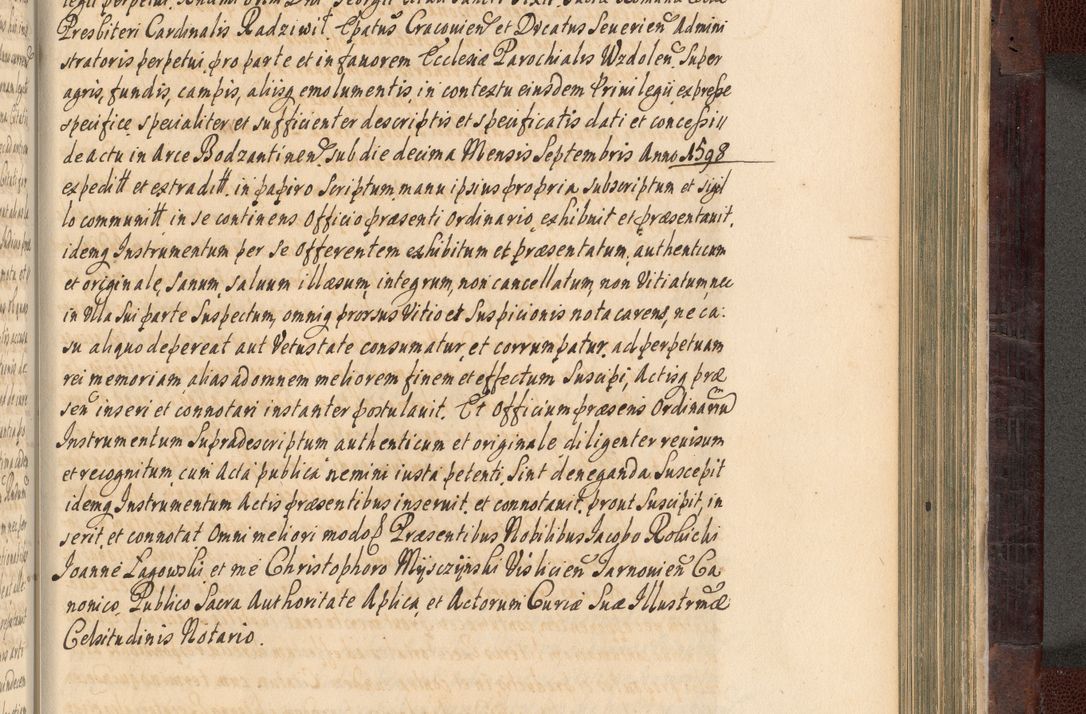 Presbiteri Cardinalis Radziwił Epatus Cracouien et Ducatus Seuerien Admini
stratoris perpetui pro parte et in fauorem Ecclesiæ Parochialis Wzdolen Super
agris, fundis, campis, aliisq emolumentis in contextu eiusdem Priuilegii expresse
specifice specialiter et sufficienter descriptis et specificatis dati et concessi
de actu in Arce Bodzantinen sub die decima Mensis Septembris Anno 1598
expeditt et extraditt, in papiro Scriptum, manu ipsius propria subscriptum et sigil
lo communitt in se continens Officio præsenti Ordinario, exhibuit et præsentauit,
idemq Instrumentum per Se Offerentem exhibitum et præsentatum, authenticum
et originale, Sanum, Saluum illæsum, integrum, non cancellatum, non Vitiatum, nec
in Vlla Sui parte Suspectum, omniq prorsus Vitio et Suspicionis nota carens, ne ca.
su aliquo depereat aut Vetustate consumatur, et corrumpatur, ad perpetuam
rei memoriam, alias ad omnem meliorem finem et effectum Suscipi, Actisq præ
sen inseri et connotari instanter postulauit. Et Officium præsens Ordinarium
Instrumentum Supradescriptum authenticum et originale diligenter reuisum
et recognitum, cum Acta publica nemini iusta petenti Sint deneganda Suscepit
idemq Instrumentum Actis præsentibus inseruit, et connotauit, prout Suscipit, in
serit, et connotat Omni meliori modo. Præsentibus Nobilibus Jacobo Rokicki
Joanne Lagowski, et me Christophoro Mysczynski Vislicien Tarnouien Ca
nonico, Publico Sacra Authoritate Aplica, et Actorum Curiæ Suæ Illustrmæ
Celsitudinis Notario.